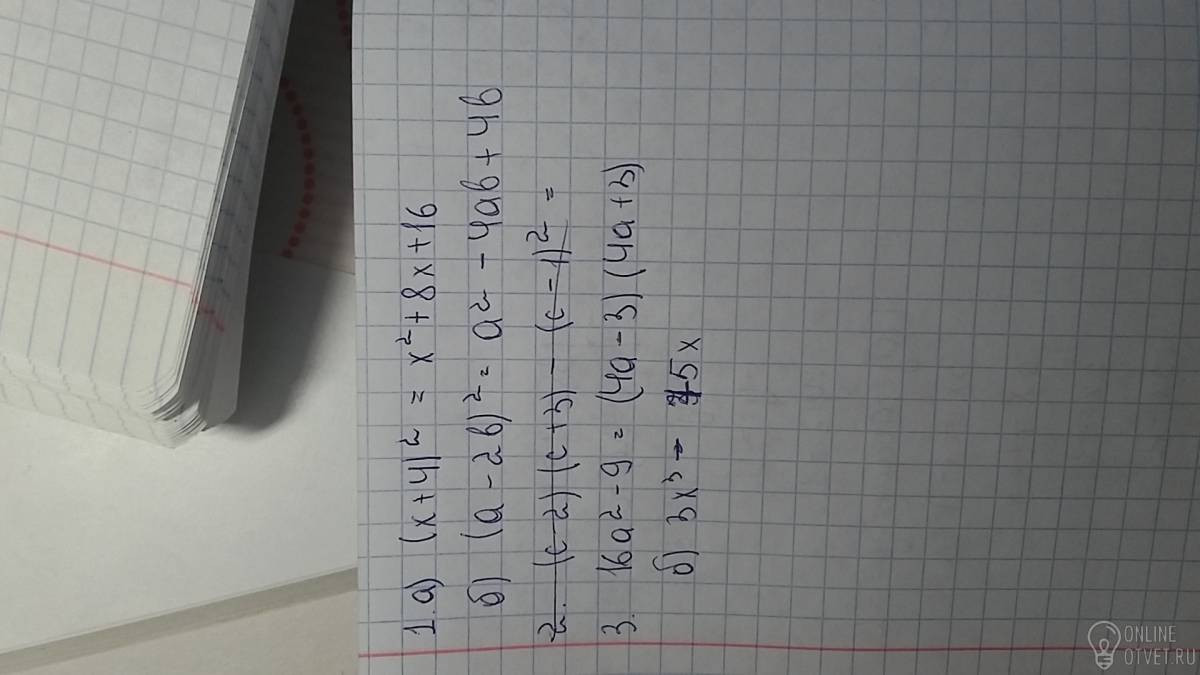 1. а) (x+4)² = x²+8x+16
б) (a-2b)² = a² - 4ab + 4b
2. (c-2)(c+3) - (c-1)² =
3. 16a²-9 = (4a-3)(4a+3)
б) 3x³ - 5x
ONLINE
OTVET.RU